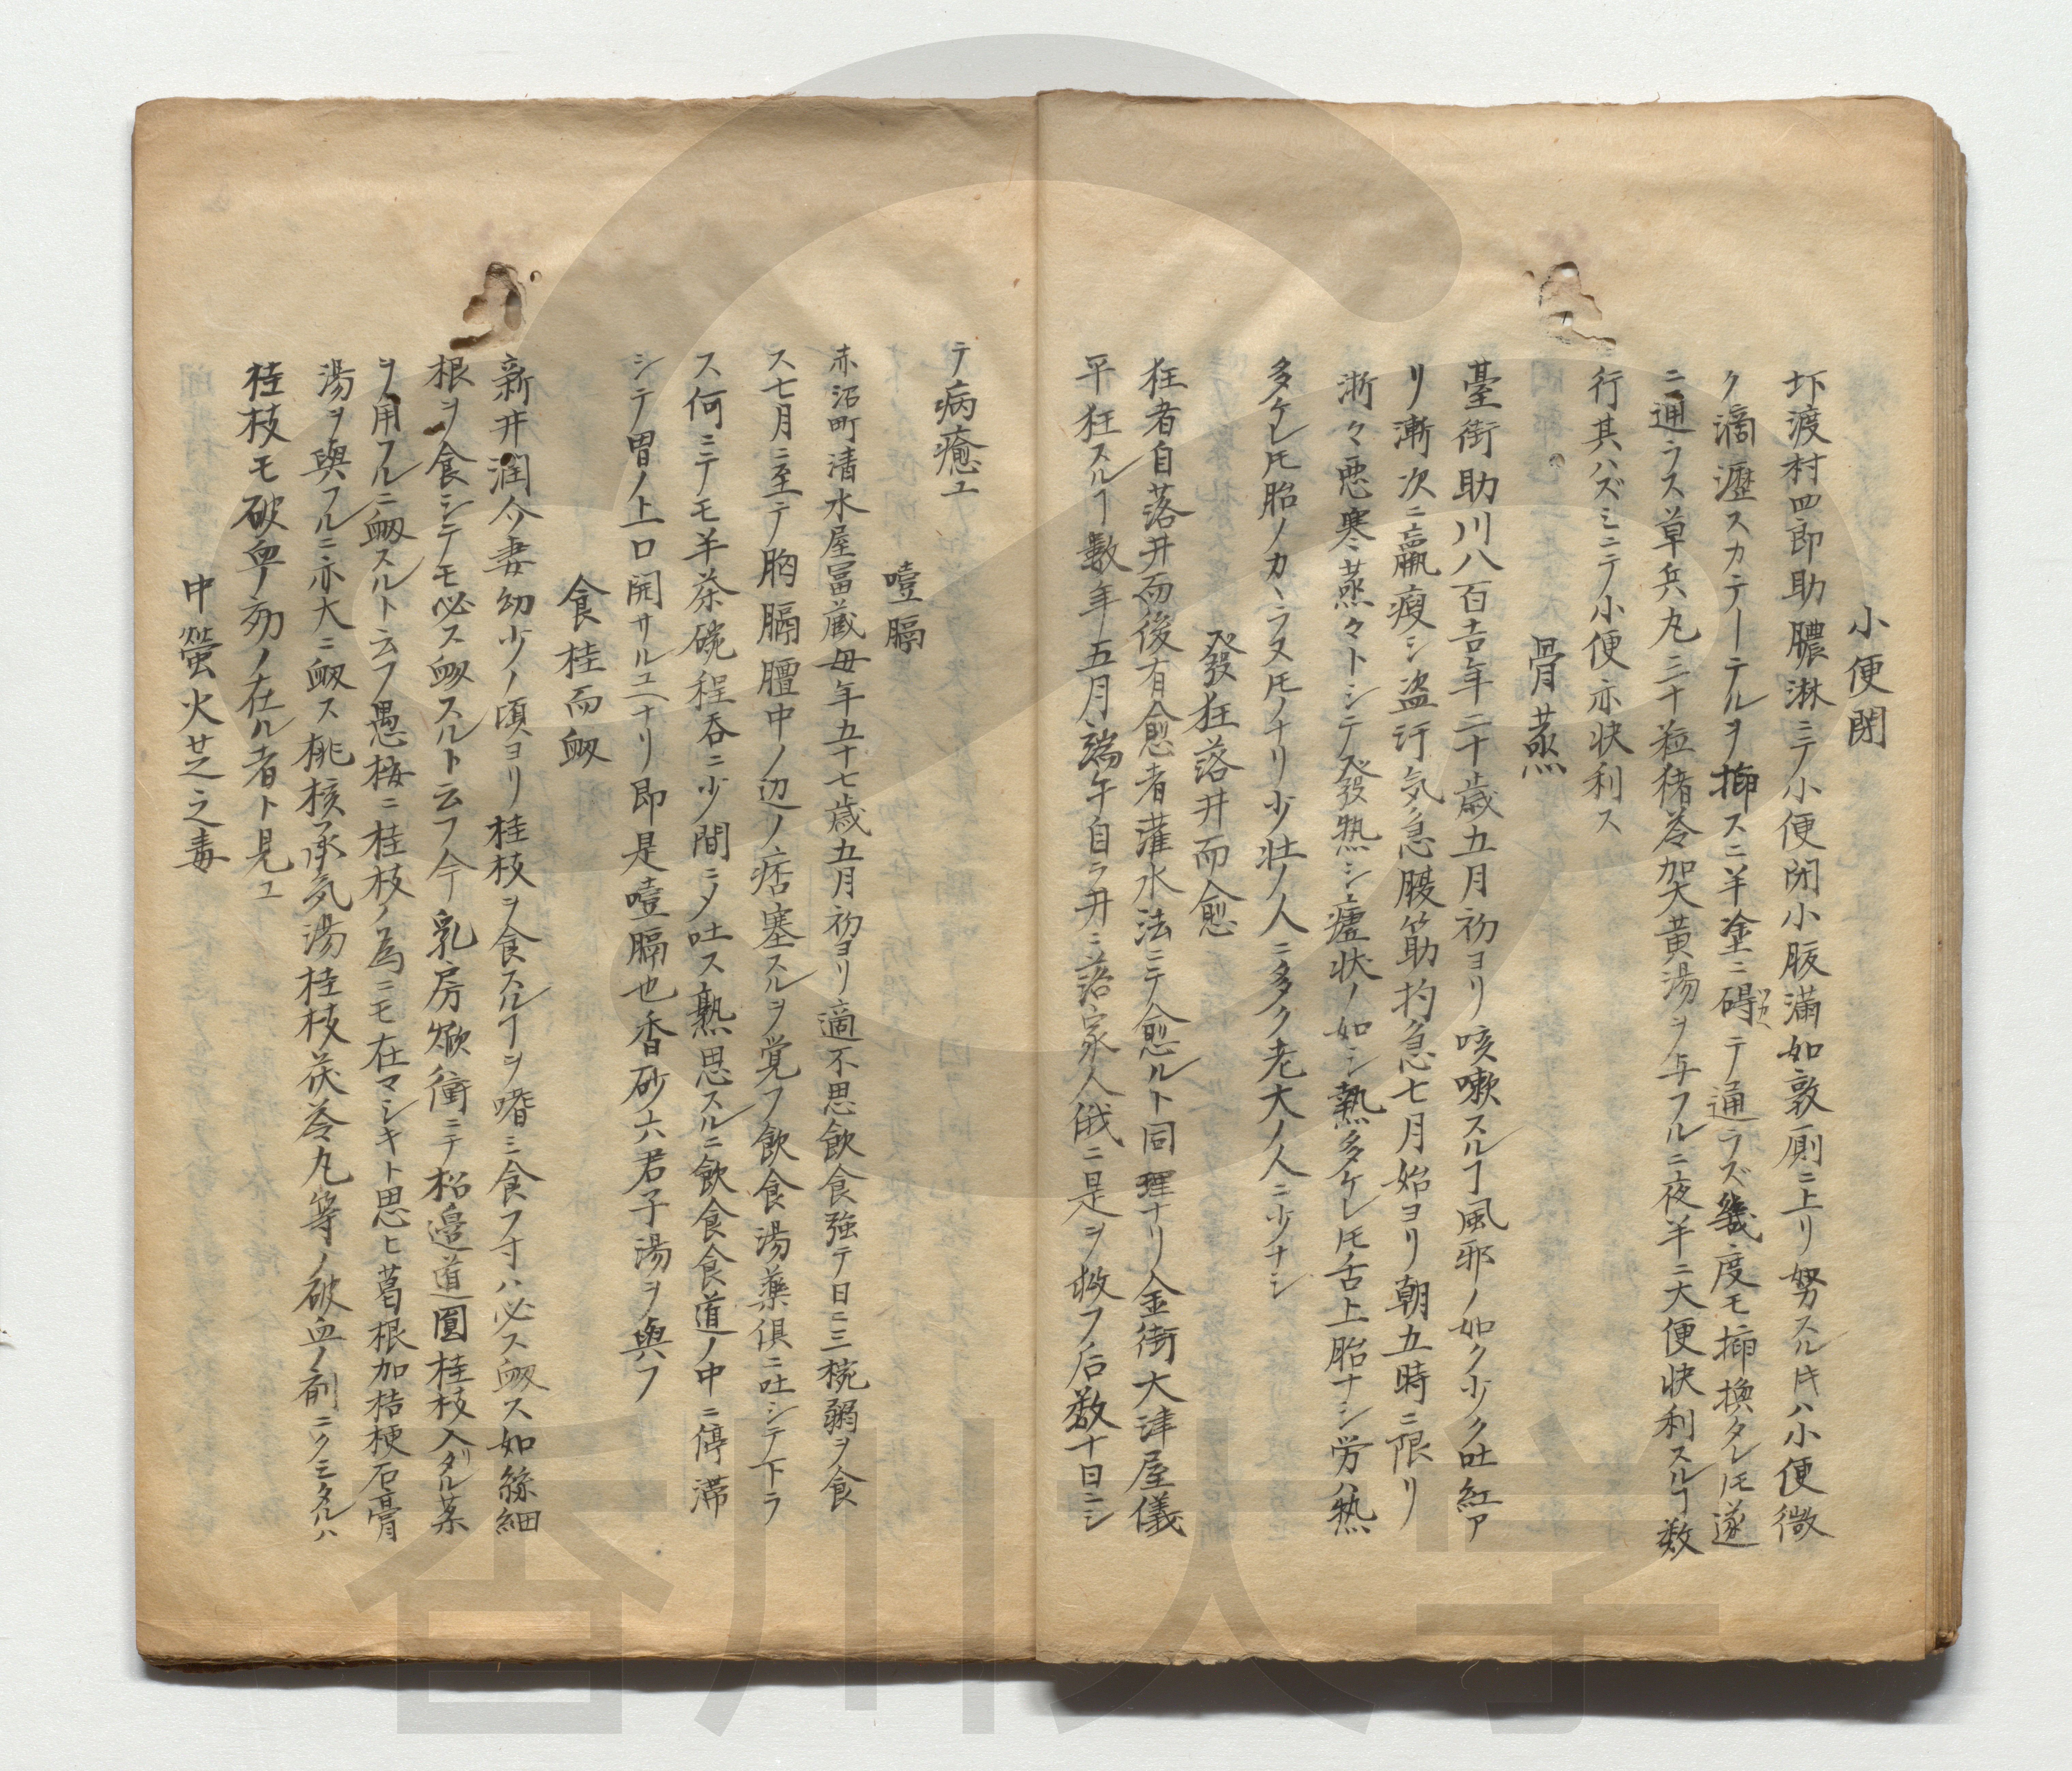 小便閉
圷渡村四郎助膿淋ニテ小便閉小腹満如敦厠ニ上リ努スル𪜈ハ小便微
ク滴瀝スカテーテルヲ挿スニ半塗ニ碍テ通ラズ幾度モ挿換タレ𪜈遂
ニ通ラス草兵丸三十粒猪苓加大黄湯ヲ与フルニ夜半ニ大便快利スルヿ数
行其ハズミニテ小便亦快利ス
骨蒸
臺街助川八百吉年二十歳五月初ヨリ咳嗽スルヿ風邪ノ如ク少ク吐紅ア
リ漸次ニ羸痩シ盗汗気急腹筋拘急七月始ヨリ朝五時ニ限リ
漸々悪寒蒸々トシテ發熱シ瘧状ノ如シ熱多ケレ𪜈舌上胎ナシ労ハ熱
多ケレ𪜈胎ノカヽラヌモノナリ少壮ノ人ニ多ク老大ノ人ニ少ナシ
發狂落井而愈
狂者自落井而後有愈者灌水法ニテ愈ルト同理ナリ金街大津屋儀
平狂スルヿ數年五月端午自ラ井ニ落家人俄ニ是ヲ救フ后数十日ニシ
テ病癒ユ
噎膈
赤沼町清水屋冨蔵母年五十七歳五月初ヨリ適不思飲食強テ日ニ三椀粥ヲ食
ス七月ニ至テ胸膈膻中ノ辺ノ痞塞スルヲ覚フ飲食湯藥倶ニ吐シテ下ラ
ス何ニテモ半茶碗程呑ニ少間ニ〆吐ス熟思スルニ飲食食道ノ中ニ停滞
シテ胃ノ上口開サルユヘナリ即是噎膈也香砂六君子湯ヲ與フ
食桂而衂
新井潤介妻幼少ノ頃ヨリ桂枝ヲ食スルヿヲ嗜ミ食フ寸ハ必ス衂ス如絲細
根ヲ食シテモ必ス衂スルト云フ今乳房焮衝ニテ松邉道圓桂枝入タル薬
ヲ用フルニ衂スルト云フ愚按ニ桂枝ノ為ニモ在マシキト思ヒ葛根加桔梗石膏
湯ヲ與フルニ亦大ニ衂ス桃核承気湯桂枝茯苓丸等ノ破血ノ剤ニクミタルハ
桂枝モ破血ノ効ノ在ル者ト見ユ
中螢火芝之毒